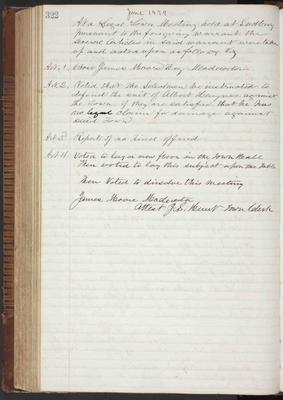 322
June 1879
At a Legal Town Meeting held at Sudbury
pursuant to the foregoing warrant the
several Articles in said warrant were taken
up and acted upon as follows viz
Art. 1. Chose James Moore Esq. Moderator
Art. 2. Voted that the Selectmen be instructed to
defend the suit of Albert against
the Town if they are satisfied that he has
no legal claim for damage against
said Town
Art. 3. Report of no kind offered
Art. 4. Voted to lay a new floor in the Town Hall
Then voted to lay this subject upon the table
Then Voted to dissolve this meeting
James Moore Moderator
Attest J.S. Hunt Town Clerk